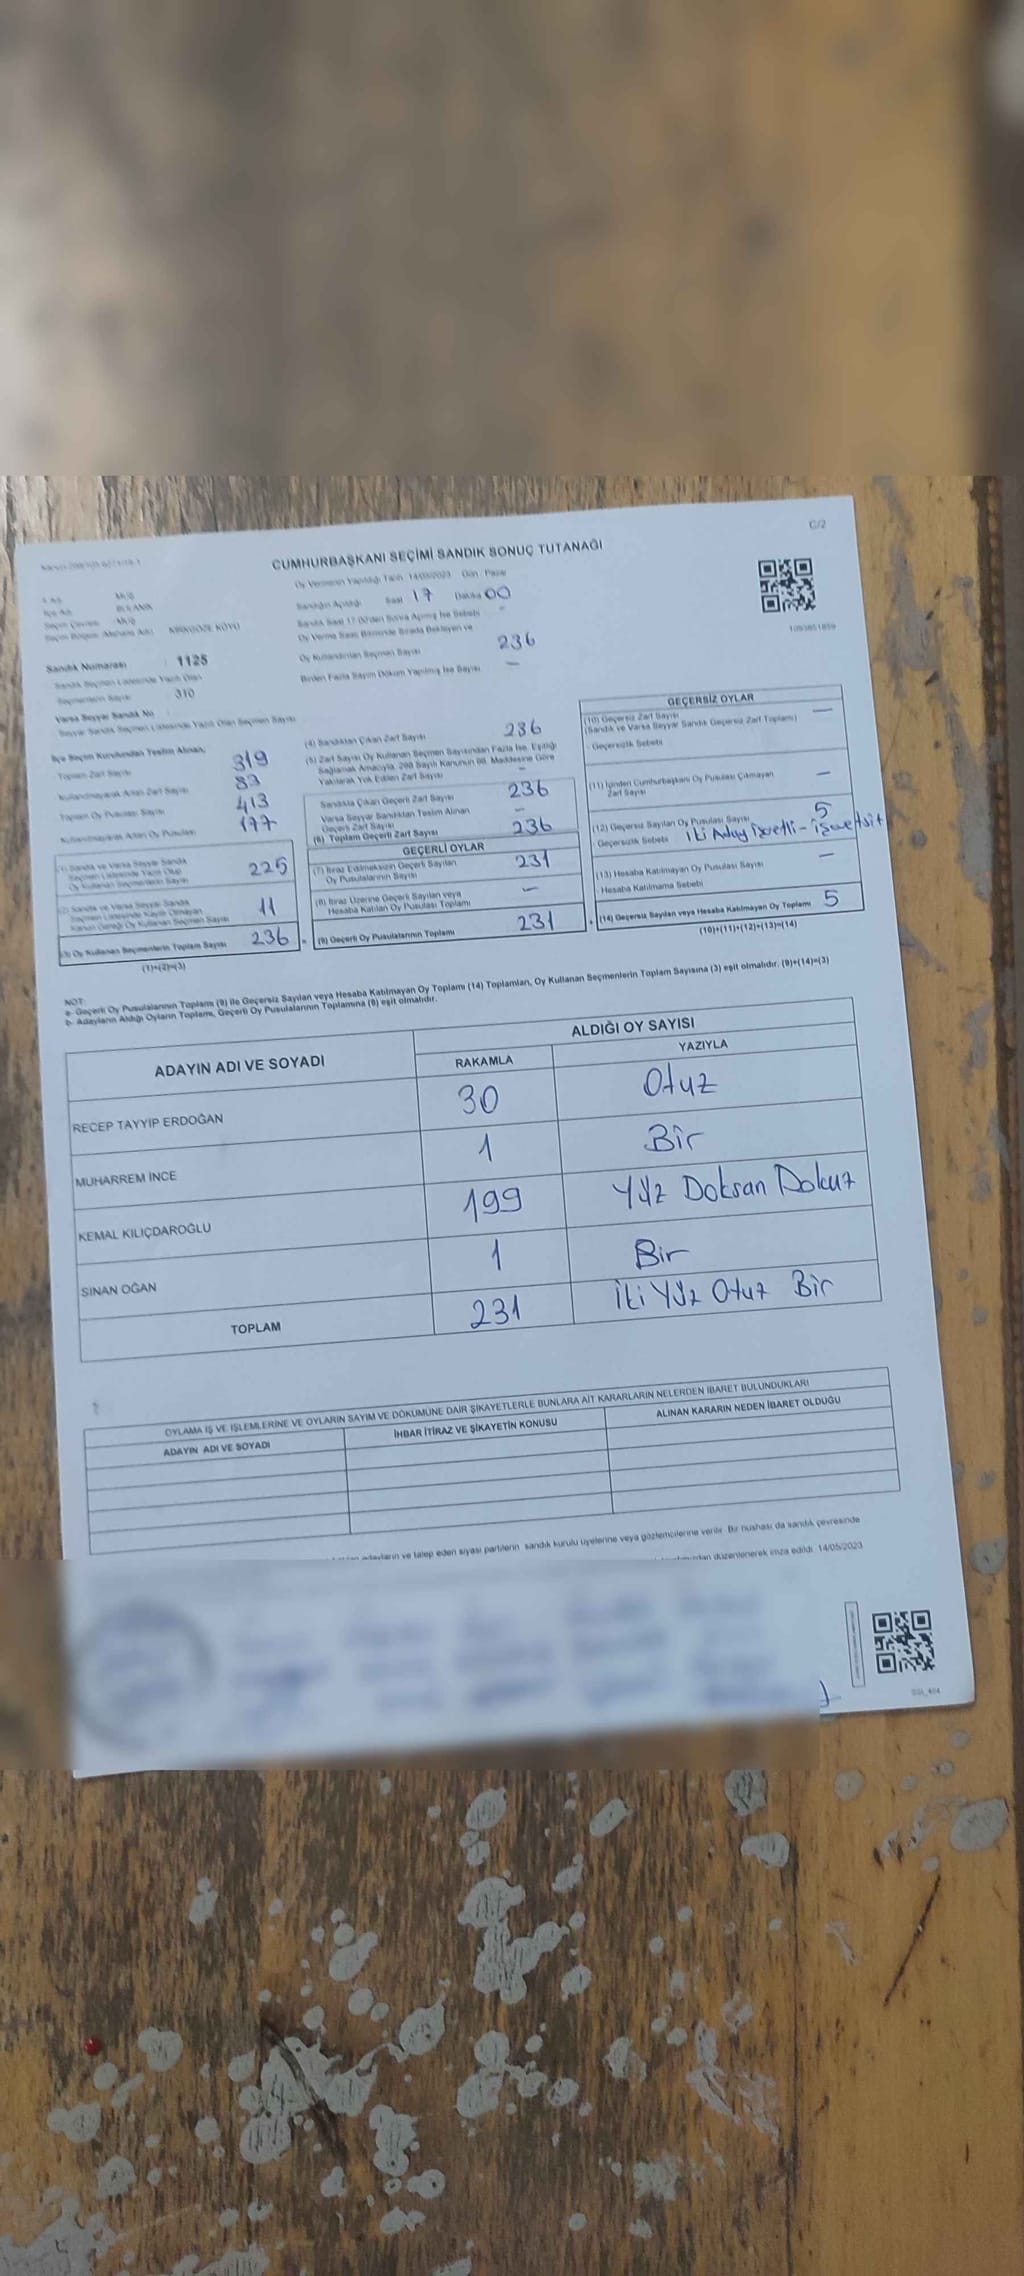 C/2
CUMHURBAŞKANI SEÇİMİ SANDIK SONUÇ TUTANAĞI
Oy Vermenin Yapıldığı Tarih 14/05/2023 Gün Pazar
İl Adı MUŞ
İlçe Adı BULANIK
Seçim Çevresi MUŞ
Seçim Bölgesi (Mahalle Adı)
KÖYÜ
Sandığın Açıldığı Saat 17 Dakika 00
Sandık Saat 17:00'den Sonra Açılmış İse Sebebi -
Oy Verme Saati Bitiminde Sırada Bekleyen ve
Oy Kullandırılan Seçmen Sayısı 236
Birden Fazla Sayım Döküm Yapılmış İse Sayısı —
1093851859
Sandık Numarası : 1125
Sandık Seçmen Listesinde Yazılı Olan
Seçmenlerin Sayısı : 310
Varsa Seyyar Sandık No
Seyyar Sandık Seçmen Listesinde Yazılı Olan Seçmen Sayısı
İlçe Seçim Kurulundan Teslim Alınan;
Toplam Zarf Sayısı 319
Kullanılmayarak Artan Zarf Sayısı 83
Toplam Oy Pusulası Sayısı 413
Kullanılmayarak Artan Oy Pusulası 177
(1) Sandık ve Varsa Seyyar Sandık
Seçmen Listesinde Yazılı Olup
Oy Kullanan Seçmenlerin Sayısı 225
(2) Sandık ve Varsa Seyyar Sandık
Seçmen Listesinde Kayıtlı Olmayan
Kanun Gereği Oy Kullanan Seçmen Sayısı 11
(3) Oy Kullanan Seçmenlerin Toplam Sayısı 236 =
(1)+(2)=(3)
(4) Sandıktan Çıkan Zarf Sayısı 236
(5) Zarf Sayısı Oy Kullanan Seçmen Sayısından Fazla İse, Eşitliği
Sağlamak Amacıyla, 298 Sayılı Kanunun 98. Maddesine Göre
Yakılarak Yok Edilen Zarf Sayısı -
Sandıkta Çıkan Geçerli Zarf Sayısı 236
Varsa Seyyar Sandıktan Teslim Alınan
Geçerli Zarf Sayısı -
(6) Toplam Geçerli Zarf Sayısı 236
GEÇERLİ OYLAR
(7) İtiraz Edilmeksizin Geçerli Sayılan
Oy Pusulalarının Sayısı 231
(8) İtiraz Üzerine Geçerli Sayılan veya
Hesaba Katılan Oy Pusulası Toplamı —
(9) Geçerli Oy Pusulalarının Toplamı 231 +
GEÇERSİZ OYLAR
(10) Geçersiz Zarf Sayısı —
(Sandık ve Varsa Seyyar Sandık Geçersiz Zarf Toplamı)
- Geçersizlik Sebebi
(11) İçinden Cumhurbaşkanı Oy Pusulası Çıkmayan
Zarf Sayısı —
(12) Geçersiz Sayılan Oy Pusulası Sayısı 5
- Geçersizlik Sebebi İki Aday işaretli - işaretsiz
(13) Hesaba Katılmayan Oy Pusulası Sayısı —
Hesaba Katılmama Sebebi
(14) Geçersiz Sayılan veya Hesaba Katılmayan Oy Toplamı 5
(10)+(11)+(12)+(13)=(14)
NOT:
a- Geçerli Oy Pusulalarının Toplamı (9) ile Geçersiz Sayılan veya Hesaba Katılmayan Oy Toplamı (14) Toplamları, Oy Kullanan Seçmenlerin Toplam Sayısına (3) eşit olmalıdır. (9)+(14)=(3)
b- Adayların Aldığı Oyların Toplamı, Geçerli Oy Pusulalarının Toplamına (9) eşit olmalıdır.
ADAYIN ADI VE SOYADI
ALDIĞI OY SAYISI
RAKAMLA YAZIYLA
RECEP TAYYİP ERDOĞAN 30 Otuz
MUHARREM İNCE 1 Bir
KEMAL KILIÇDAROĞLU 199 Yüz Doksan Dokuz
SİNAN OĞAN 1 Bir
TOPLAM 231 İki Yüz Otuz Bir
OYLAMA İŞ VE İŞLEMLERİNE VE OYLARIN SAYIM VE DÖKÜMÜNE DAİR ŞİKAYETLERLE BUNLARA AİT KARARLARIN NELERDEN İBARET BULUNDUKLARI
ADAYIN ADI VE SOYADI İHBAR İTİRAZ VE ŞİKAYETİN KONUSU ALINAN KARARIN NEDEN İBARET OLDUĞU
adayların ve talep eden siyasi partilerin sandık kurulu üyelerine veya gözlemcilerine verilir. Bir nushası da sandık çevresinde
düzenlenerek imza edildi. 14/05/2023